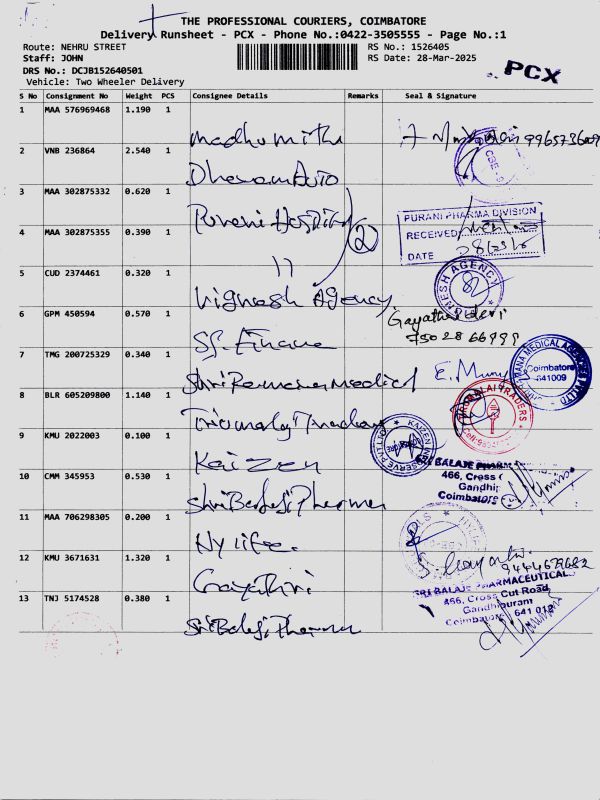 THE PROFESSIONAL COURIERS, COIMBATORE
Delivery Runsheet - PCX - Phone No.:0422-3505555 - Page No.:1
Route: NEHRU STREET
RS No.: 1526405
Staff: JOHN
RS Date: 28-Mar-2025
DRS No.: DCJB152640501
Vehicle: Two Wheeler Delivery
PCX
S No Consignment No Weight PCS Consignee Details Remarks Seal & Signature
1 MAA 576969468 1.190 1 Madhumitha
2 VNB 236864 2.540 1 Dharam Auto
3 MAA 302875332 0.620 1 Purani Hospital
PURANI PHARMA DIVISION
RECEIVED
DATE
4 MAA 302875355 0.390 1 11 2
5 CUD 2374461 0.320 1 Vignesh Agency
6 GPM 450594 0.570 1 SF. Finance Gayathri devi
75028 66999
7 TMG 200725329 0.340 1 Shri Ramana Medical
Coimbatore
641009
8 BLR 605209800 1.140 1
9 KMU 2022003 0.100 1 Kaizen
SRI BALAJE PHARM
466, Cross
Gandhi
Coimbatore
10 CMM 345953 0.530 1 Shri Balaji Pharma
11 MAA 706298305 0.200 1 Hy life.
12 KMU 3671631 1.320 1 Gayathri
SRI BALAJE PHARMACEUTICAL
466, Cross Cut Road
Gandhipuram
Coimbatore 641 012
13 TNJ 5174528 0.380 1 Sri Balaji Pharma